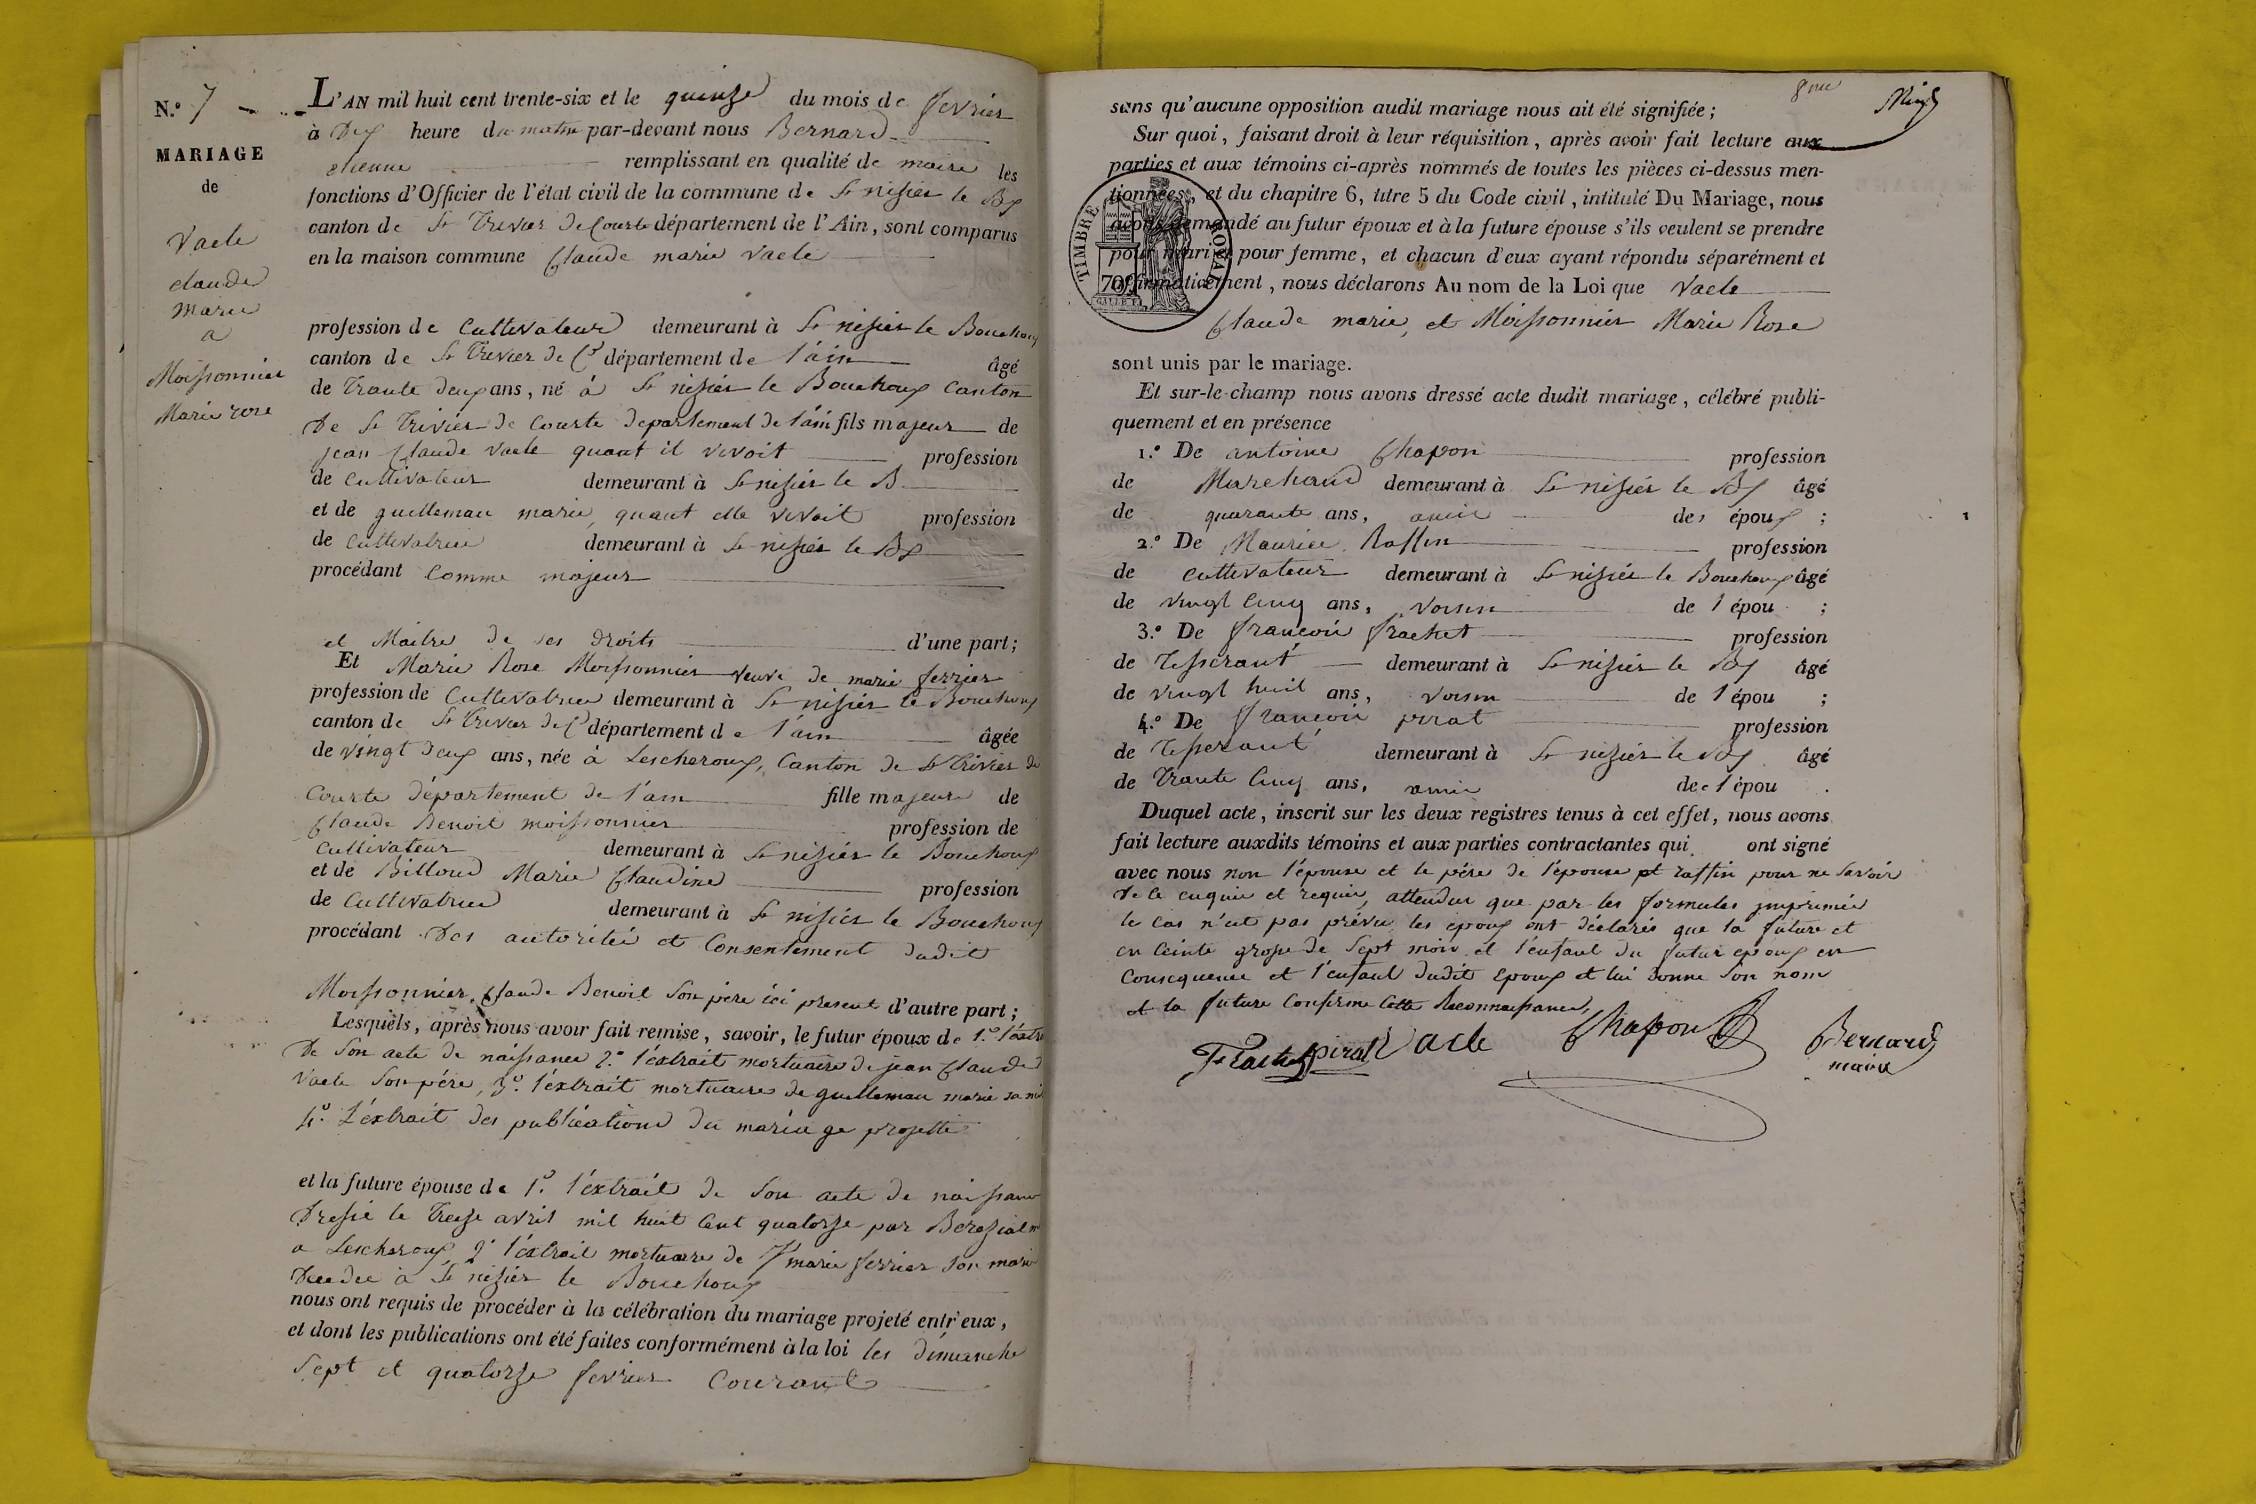 N.o 7
MARIAGE
de
Vacle
claude
marie
a
Moissonnier
Marie rose
L'AN mil huit cent trente-six et le quinze du mois de fevrier
à Dix heure du matin par-devant nous Bernard
etienne remplissant en qualité de maire les
fonctions d'Officier de l'état civil de la commune de St nisier le Bx
canton de St Trivier de Courte département de l'Ain, sont comparus
en la maison commune Claude marie Vacle
profession de Cultivateur demeurant à St nisier le Bouchoux
canton de St Trivier de Cs département de l'ain âgé
de Trante deux ans, né à St nisier le Bouchoux Canton
De St Trivier de Courte departement de l'ain fils majeur de
jean Claude Vacle quant il vivoit profession
de cultivateur demeurant à St nisier le B
et de guilleman marie, quant elle vivoit profession
de cultivatrice demeurant à St nisier le Bx
procédant comme majeur
et Maitre de ses droits d'une part;
Et Marie Rose Moissonnier veuve de marie ferrier
profession de Cultivatrice demeurant à St nisier le Bouchoux
canton de St Trivier de Cs département de l'ain âgée
de vingt deux ans, née à Lescheroux, Canton de St Trivier de
Courte département de l'ain fille majeure de
Claude Benoit moissonnier profession de
Cultivateur demeurant à St nisier le Bouchoux
et de Billoud Marie Claudine profession
de Cultivatrice demeurant à St nisier le Bouchoux
procédant Des autorité et Consentement dudit
Moissonnier Claude Benoit son père ici present d'autre part;
Lesquels, après nous avoir fait remise, savoir, le futur époux de 1.o l'extr
De son acte de naissance 2.o l'éxtrait mortuaire de jean Claude
Vacle son père, 3.o l'éxtrait mortuaire de guilleman marie sa m
4.o L'éxtrait des publications du mariage projetté
et la future épouse de 1.o l'éxtrait de son acte de naissance
Dressé le Treize avril mil huit cent quatorze par Bereziat m
a Lescheroux, 2o l'éxtrait mortuaire de marie ferrier son mari
Decedée à St nisier le Bouchoux
nous ont requis de procéder à la célébration du mariage projeté entr'eux,
et dont les publications ont été faites conformément à la loi les dimanche
sept et quatorze fevrier courant
8me
sans qu'aucune opposition audit mariage nous ait été signifiée;
Sur quoi, faisant droit à leur réquisition, après avoir fait lecture aux
parties et aux témoins ci-après nommés de toutes les pièces ci-dessus men-
tionnées, et du chapitre 6, titre 5 du Code civil, intitulé Du Mariage, nous
avons demandé au futur époux et à la future épouse s'ils veulent se prendre
pour mari et pour femme, et chacun d'eux ayant répondu séparément et
affirmativement, nous déclarons Au nom de la Loi que Vacle
TIMBRE ROYAL
70
Claude marie, et Moissonnier Marie Rose
sont unis par le mariage.
Et sur-le-champ nous avons dressé acte dudit mariage, célébré publi-
quement et en présence
1.o De antoine Chapon profession
de Marchand demeurant à St nisier le Bx âgé
de quarante ans, amie des époux;
2.o De Maurice Raffin profession
de cultivateur demeurant à St nisier le Bouchoux âgé
de vingt cinq ans, voisin de l épou;
3.o De françois frachet profession
de Tisserant demeurant à St nisier le Bx âgé
de vingt huit ans, voisin de l épou;
4.o De françois pirat profession
de Tisserant demeurant à St nisier le Bx âgé
de Trante cinq ans, amie de l épou.
Duquel acte, inscrit sur les deux registres tenus à cet effet, nous avons
fait lecture auxdits témoins et aux parties contractantes qui ont signé
avec nous non l'épouse et le père de l'épouse et raffin pour ne savoir
De ce enquis et requis, attendu que par les formules imprimée
le cas n'est pas prévu les epoux ont déclarés que la future et
en ceinte grosse de sept mois et l'enfant du futur epoux en
consequence et l'enfant dudit epoux et lui donne son nom
et la future confirme cette Reconnaissance,
Frachet pirat Vacle Chapon Bernard
maire